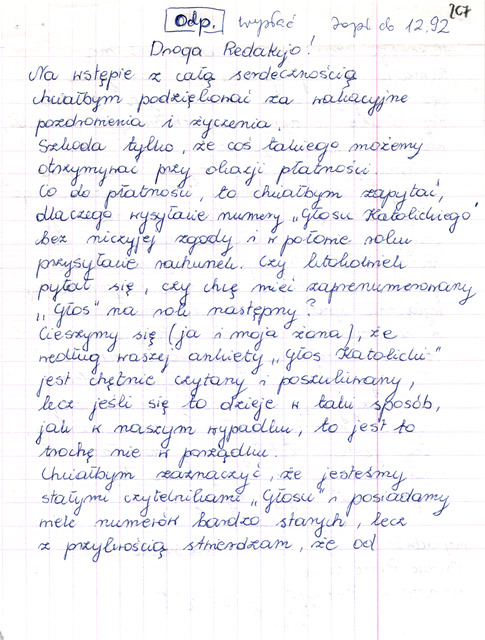 Odp. wysłać zapł. do 12.92 207
Droga Redakcjo!
Na wstępie z całą serdecznością
chciałbym podziękować za wakacyjne
pozdrowienia i życzenia.
Szkoda tylko, że coś takiego możemy
otrzymywać przy okazji płatności.
Co do płatności, to chciałbym zapytać,
dlaczego wysyłacie numery „Głosu Katolickiego"
bez niczyjej zgody i w połowie roku
przysyłacie rachunek. Czy ktokolwiek
pytał się, czy chcę mieć zaprenumerowany
„Głos" na rok następny?
Cieszymy się (ja i moja żona), że
według waszej ankiety „Głos Katolicki"
jest chętnie czytany i poszukiwany,
lecz jeśli się to dzieje w taki sposób,
jak w naszym wypadku, to jest to
trochę nie w porządku.
Chciałbym zaznaczyć, że jesteśmy
stałymi czytelnikami „Głosu" i posiadamy
wiele numerów bardzo starych, lecz
z przykrością stwierdzam, że od